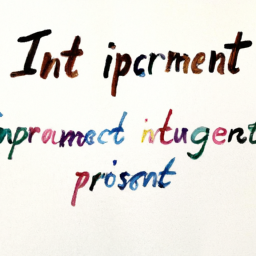 Int ipcrment
inpramect intugent
prisont